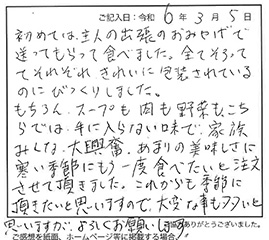 ご記入日：令和 6年 3月 5日
初めては、主人の出張のおみやげで
送ってもらって食べました。全てそろって
てそれぞれ、きれいに包装されている
のにびっくりしました。
もちろん、スープも肉も野菜も、こち
らでは手に入らない味で、家族
みんな大興奮。あまりの美味しさに
寒い季節にもう一度食べたいと注文
させて頂きました。これからも季節に
頂きたいと思いますので、大変な事も多いと
思いますが、よろしくお願いします。
ありがとうございました。
ご感想を紙面、ホームページ等に掲載する場合